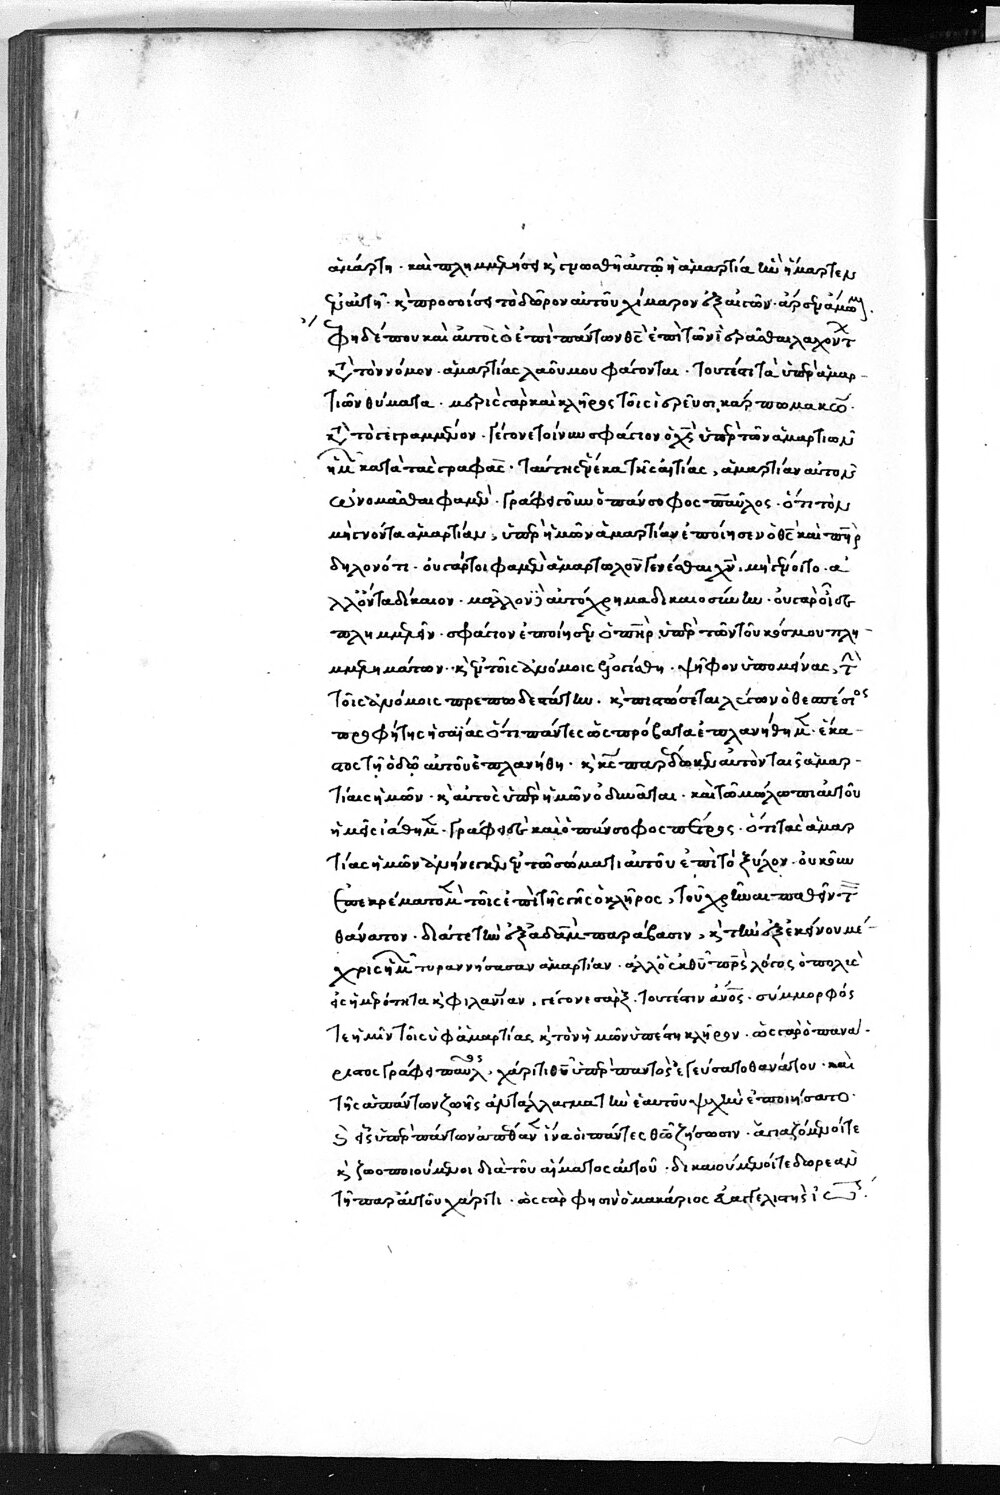 ἁμάρτη · καὶ πλημμελήσει κ̀ γνωσθῆ αὐτῶ ἡ ἁμαρτία ἣν ἥμαρτεν
ἐν αὐτῆ · κ̀ προσοίσει τὸ δῶρον αὐτοῦ χίμαρον ἐξ αἰγῶν · ἄρσεν ἄμωμον.
Φησὶ δέ που καὶ αὐτὸς ὁ ἐπὶ πάντων θς̄ ἐπὶ τῶν ἱερᾶσθαι λαχόντ
κτ̀ τὸν νόμον · ἁμαρτίας λαοῦ μου φάγονται · τουτέστι τὰ ὑπὲρ ἁμαρ-
τιῶν θύματα · μερὶς γὰρ καὶ κλῆρος τοῖς ἱερεῦσι
κτ̀ τὸ γεγραμμένον · γέγονε τοίνυν σφάγιον ὁ χς̄ ὑπὲρ τῶν ἁμαρτιῶν
ἡμ̄ κατὰ τὰς γραφάς · ταύτης ἕνεκα τῆς αἰτίας, ἁμαρτίαν αὐτὸν
ὠνομᾶσθαι φαμέν · γράφει γοῦν ὁ πάνσοφος παῦλος · ὅτι τὸν
μὴ γνόντα ἁμαρτίαν, ὑπὲρ ἡμῶν ἁμαρτίαν ἐποίησεν ὁ θς̄ καὶ πη̄ρ
δηλονότι · οὐ γάρτοι φαμὲν ἁμαρτωλὸν γενέσθαι χν̄, μὴ γένοιτο · ἀ
λλ' ὄντα δίκαιον · μᾶλλον δὲ αὐτόχρημα δικαιοσύνην · οὐ γὰρ οἶδε
πλημμελεῖν · σφάγιον ἐποίησεν ὁ πη̄ρ ὑπὲρ τῶν τοῦ κόσμου πλη-
μμελημάτων · κ̀ ἐν τοῖς ἀνόμοις ἐλογίσθη · ψῆφον ὑπομείνας, τ̀
τοῖς ἀνόμοις πρεπωδεστάτην · κ̀ πιστώσεται λέγων ὁ θεσπέσιος
προφήτης ἡσαΐας ὅτι πάντες ὡς πρόβατα ἐπλανήθημ̄ · ἕκα-
στος τῆ ὁδῶ αὐτοῦ ἐπλανήθη · κ̀ κς̄ παρέδωκεν αὐτὸν ταῖς ἁμαρ-
τίαις ἡμῶν · κ̀ αὐτὸς ὑπὲρ ἡμῶν ὀδυνᾶται · καὶ τῶ μώλωπι αὐτοῦ
ἡμεῖς ἰάθημ̄ · γράφει δὲ καὶ ὁ πάνσοφος πέτρος · ὅτι τὰς ἁμαρ
τίας ἡμῶν ἀνήνεγκεν ἐν τῶ σώματι αὐτοῦ ἐπὶ τὸ ξύλον · οὐκοῦν
ἐπεκρέματο μ̀ τοῖς ἐπὶ τῆς γῆς ὁ κλῆρος, τοῦ χρῆναι παθεῖν τ
θάνατον · διά τε τὴν ἐξ ἀδὰμ παράβασιν, κ̀ τὴν ἐξ ἐκείνου μέ-
χρις ἡμ̄ τυραννήσασαν ἁμαρτίαν · ἀλλ' ὁ ἐκ θῦ πρς̄ λόγος ὁ πολὺς
εἰς ἡμερότητα κ̀ φιλανίαν, γέγονε σάρξ · τουτέστιν ἄνος̄ · σύμμορφός
τε ἡμῖν τοῖς ὑφ' ἁμαρτίας κ̀ τὸν ἡμῶν ὑπέστη κλῆρον · ὡς γὰρ ὁ πανά-
ριστος γράφει παῦλος, χάριτι θῦ ὑπὲρ παντὸς ἐγεύσατο θανάτου · καὶ
τῆς ἁπάντων ζωῆς ἀντάλλαγμα τὴν ἑαυτοῦ ψυχὴν ἐποιήσατο ·
κ̀ εἷς ὑπὲρ πάντων ἀπέθανεν ἵνα οἱ πάντες θῶ ζήσωσιν · ἁγιαζόμενοί τε
κ̀ ζωοποιούμενοι διὰ τοῦ αἵματος αὐτοῦ · δικαιούμενοί τε δωρεὰν
τῆ παρ' αὐτοῦ χάριτι · ὡς γάρ φησιν ὁ μακάριος εὐαγγελιστὴς ἰω